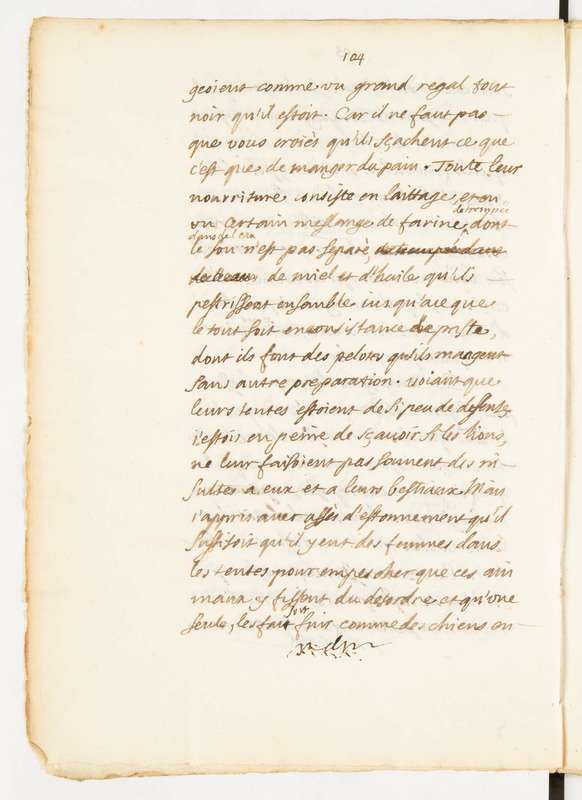 104
geoient comme un grand regal tout
noir qu'il estoit. Car il ne faut pas
que vous croiés qu'ils sçachent ce que
c'est que de manger du pain. Toute leur
nourriture consiste en laittage, et en
un certain meslange de farine detrempée
dans de l'eau dont
le son n'est pas separé, detrempée dans
de l'eau de miel et d'huile qu'ils
pestrissent ensemble jusqu'a ce que
le tout soit en consistance de paste,
dont ils font des pelotes qu'ils mangent
sans autre preparation. voiant que
leurs tentes estoient de si peu de defense
j'estois en peine de sçavoir si les lions,
ne leur faisoient pas souvent des in-
sultes a eux et a leurs bestiaux. Mais
j'appris avec assés d'estonnement qu'il
suffisoit qu'il y eut des femmes dans
les tentes pour empescher que ces ani
maux y fissent du desordre et qu'une
seule, les fait fuir comme des chiens en